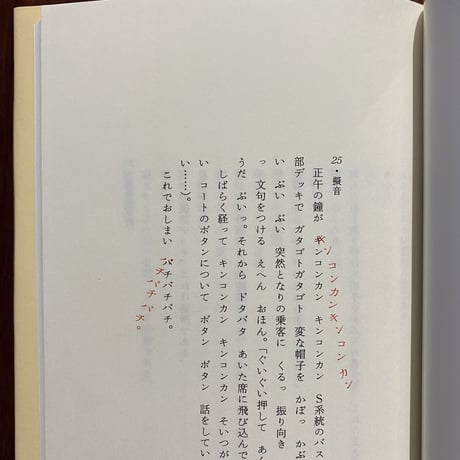 25・擬音
正午の鐘が キンコンカン キンコンカン S系統のバス
キンコンカンキンコンカン
部デッキで ガタゴトガタゴト 変な帽子を かぽっ かぶ
い ぷい ぷい 突然となりの乗客に くるっ 振り向き
っ 文句をつける えへん おほん。「ぐいぐい押して あん
うだ ぷいっ。それから ドタバタ あいた席に飛び込んで
しばらく経って キンコンカン キンコンカン そいつが
い コートのボタンについて ボタン ボタン 話をしてい
い……)。
これでおしまい パチパチパチ。